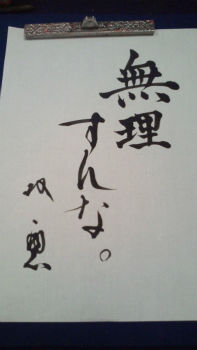 無理
すんな。